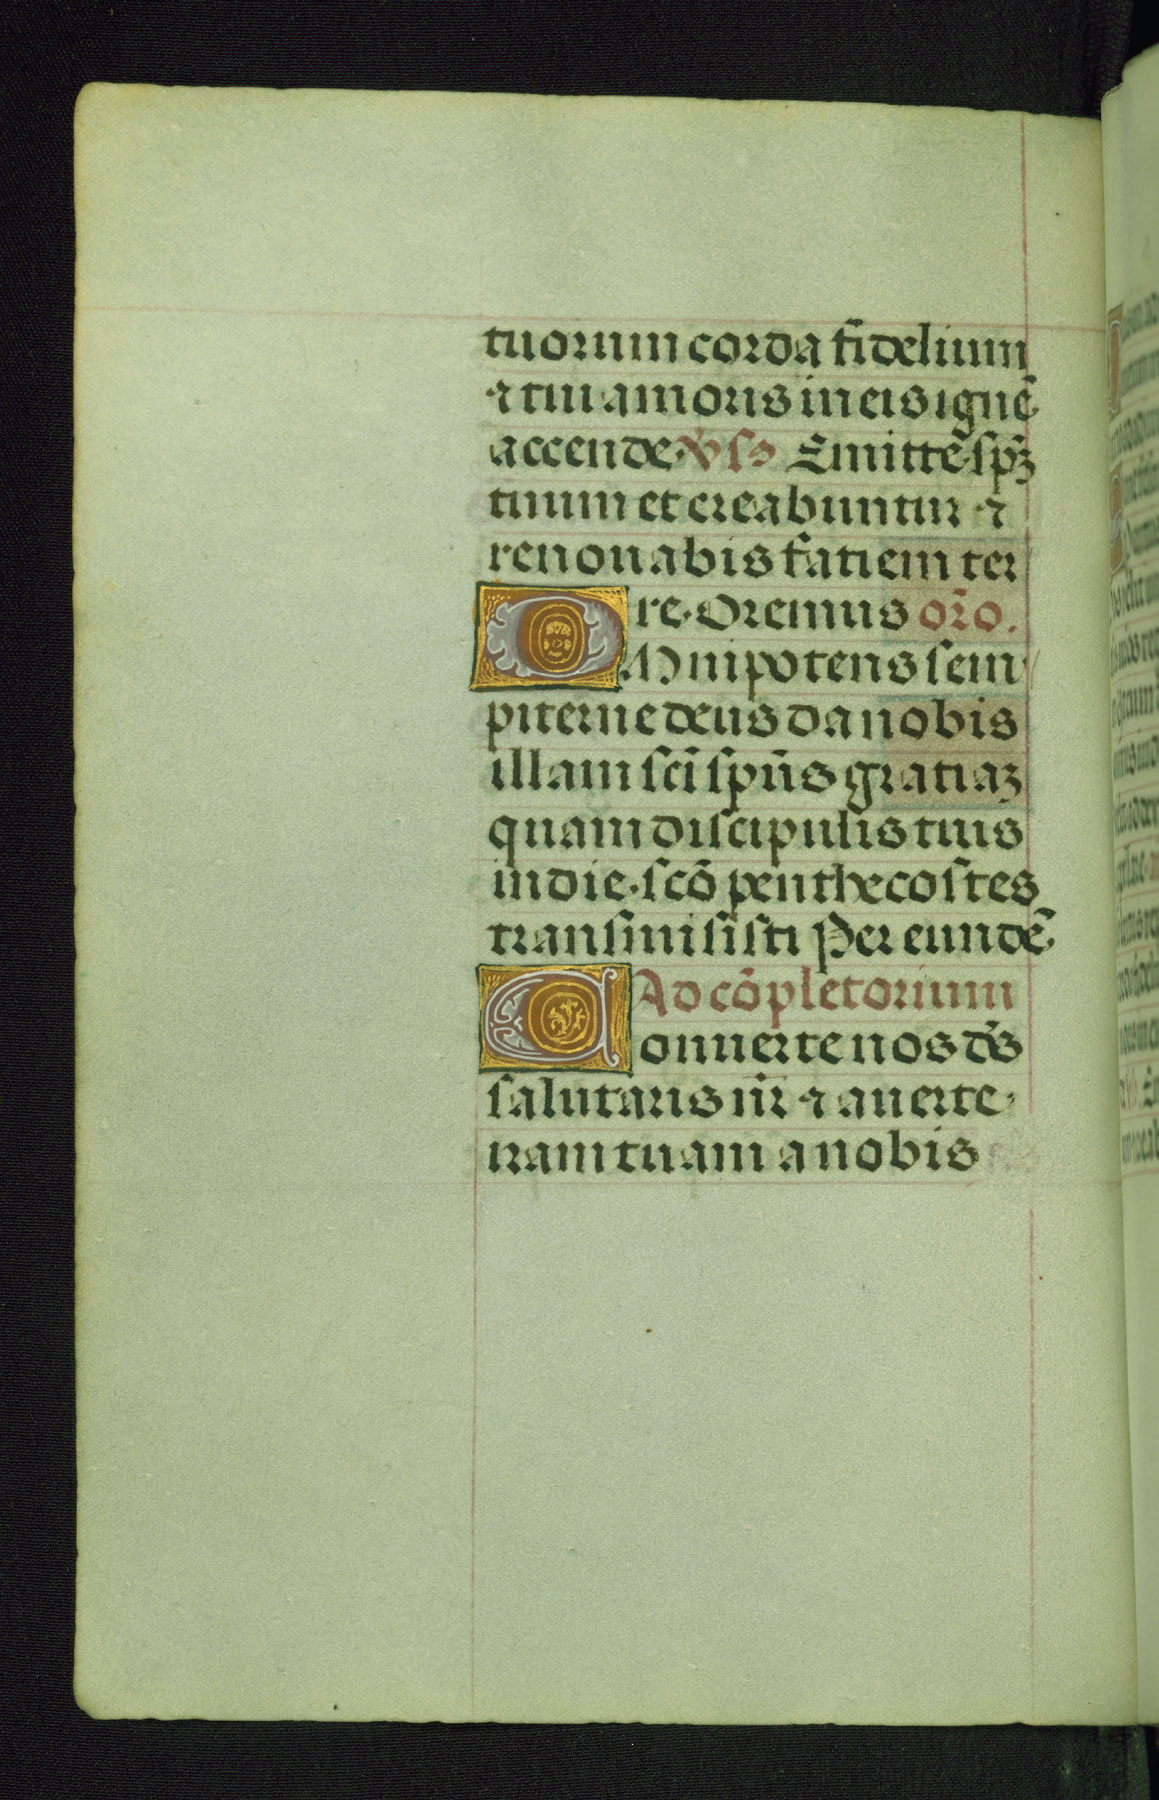 tuorum corda fidelium
⁊ tui amoris in eis ignē
accende. v̉sꝰ Emitte sp̄ꝫ
tuum et creabuntur ⁊
renouabis fatiem ter
re. Oremus or̄o.
OMnipotens sem
piterne deus da nobis
illam sc̄i sp̄us gratiaꝫ
quam discipulis tuis
in die. scō penthecostes
transmisisti Per eundē.
Ad cōpletorium
Conuerte nos ds̄
salutaris nr̄ ⁊ auerte
iram tuam a nobis